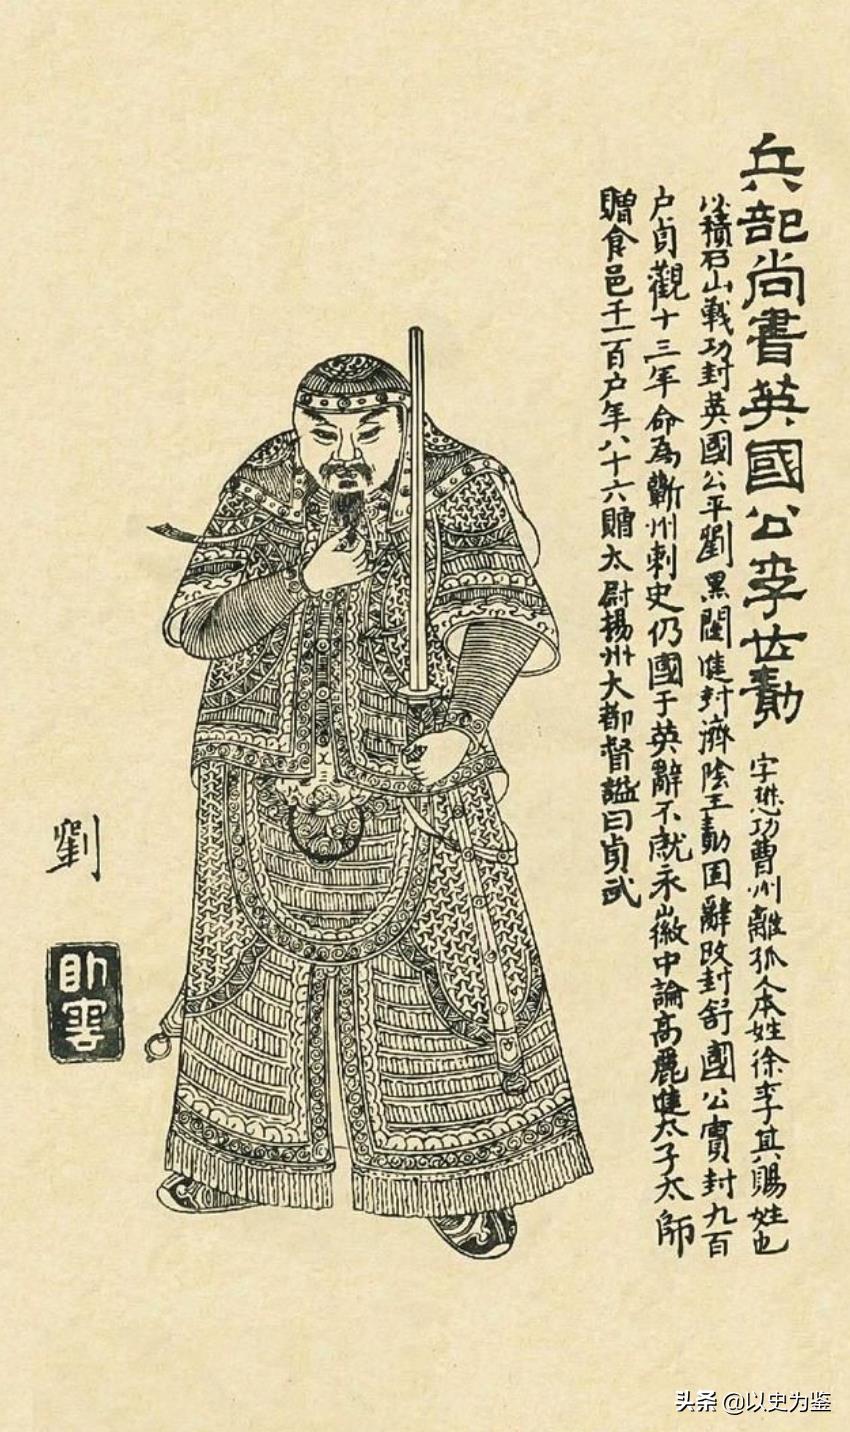 兵部尚書英國公李世勣
字懋功曹州離狐人本姓徐李其賜姓也
以積石山戰功封英國公平劉黑闥進封濟陰王勣固辭改封舒國公實封九百
户貞觀十三年命為蘄州刺史仍國于英辭不就永徽中論高麗進太子太師
贈食邑千一百户年八十六贈太尉楊州大都督謚曰貞武
劉
頭条 @以史为鉴